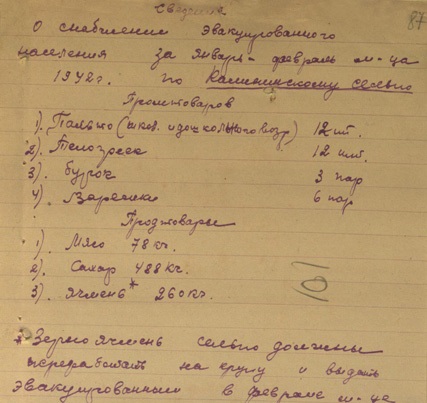 Сведения
87
О снабжении эвакуированного
населения за январь-февраль м-ца
1942г. по Калининскому сельпо
Промтоваров
1). Пальто (школ. и дошкольного возр) 12 шт.
2). Телогреек 12 шт.
3). Бурок 3 пар
4). Варежки 6 пар
Продтовары
1). Мясо 78 кг.
2). Сахар 488 кг.
3). Ячмень* 260 кг.
* Зерно ячмень сельпо должны
переработать на крупу и выдать
эвакуированным в феврале м-це